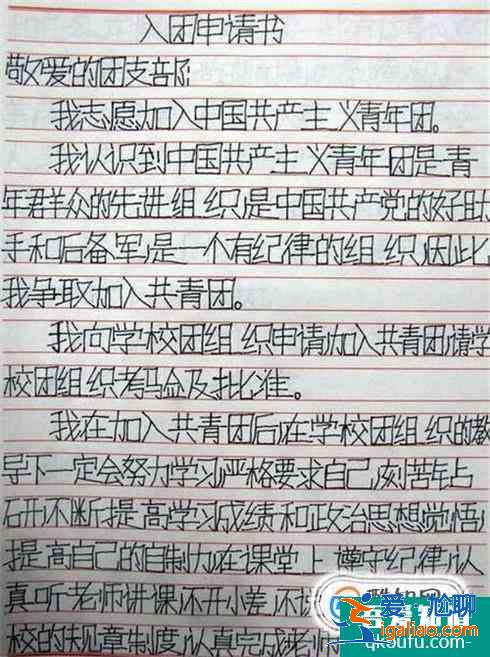 入团申请书
敬爱的团支部
我志愿加入中国共产主义青年团。
我认识到中国共产主义青年团是青
年群众的先进组织,是中国共产党的好助
手和后备军,是一个有纪律的组织,因此,
我争取加入共青团。
我向学校团组织申请,加入共青团,请学
校团组织考验及批准。
我在加入共青团后,在学校团组织的教
导下一定会努力学习,严格要求自己,刻苦钻
研,不断提高学习成绩和政治思想觉悟,
提高自己的自制力,在课堂上遵守纪律,认
真听老师讲课,不开小差,不
校的规章制度,认真完成老师
爱·尬聊
igaliao.com
qk9ufu.com